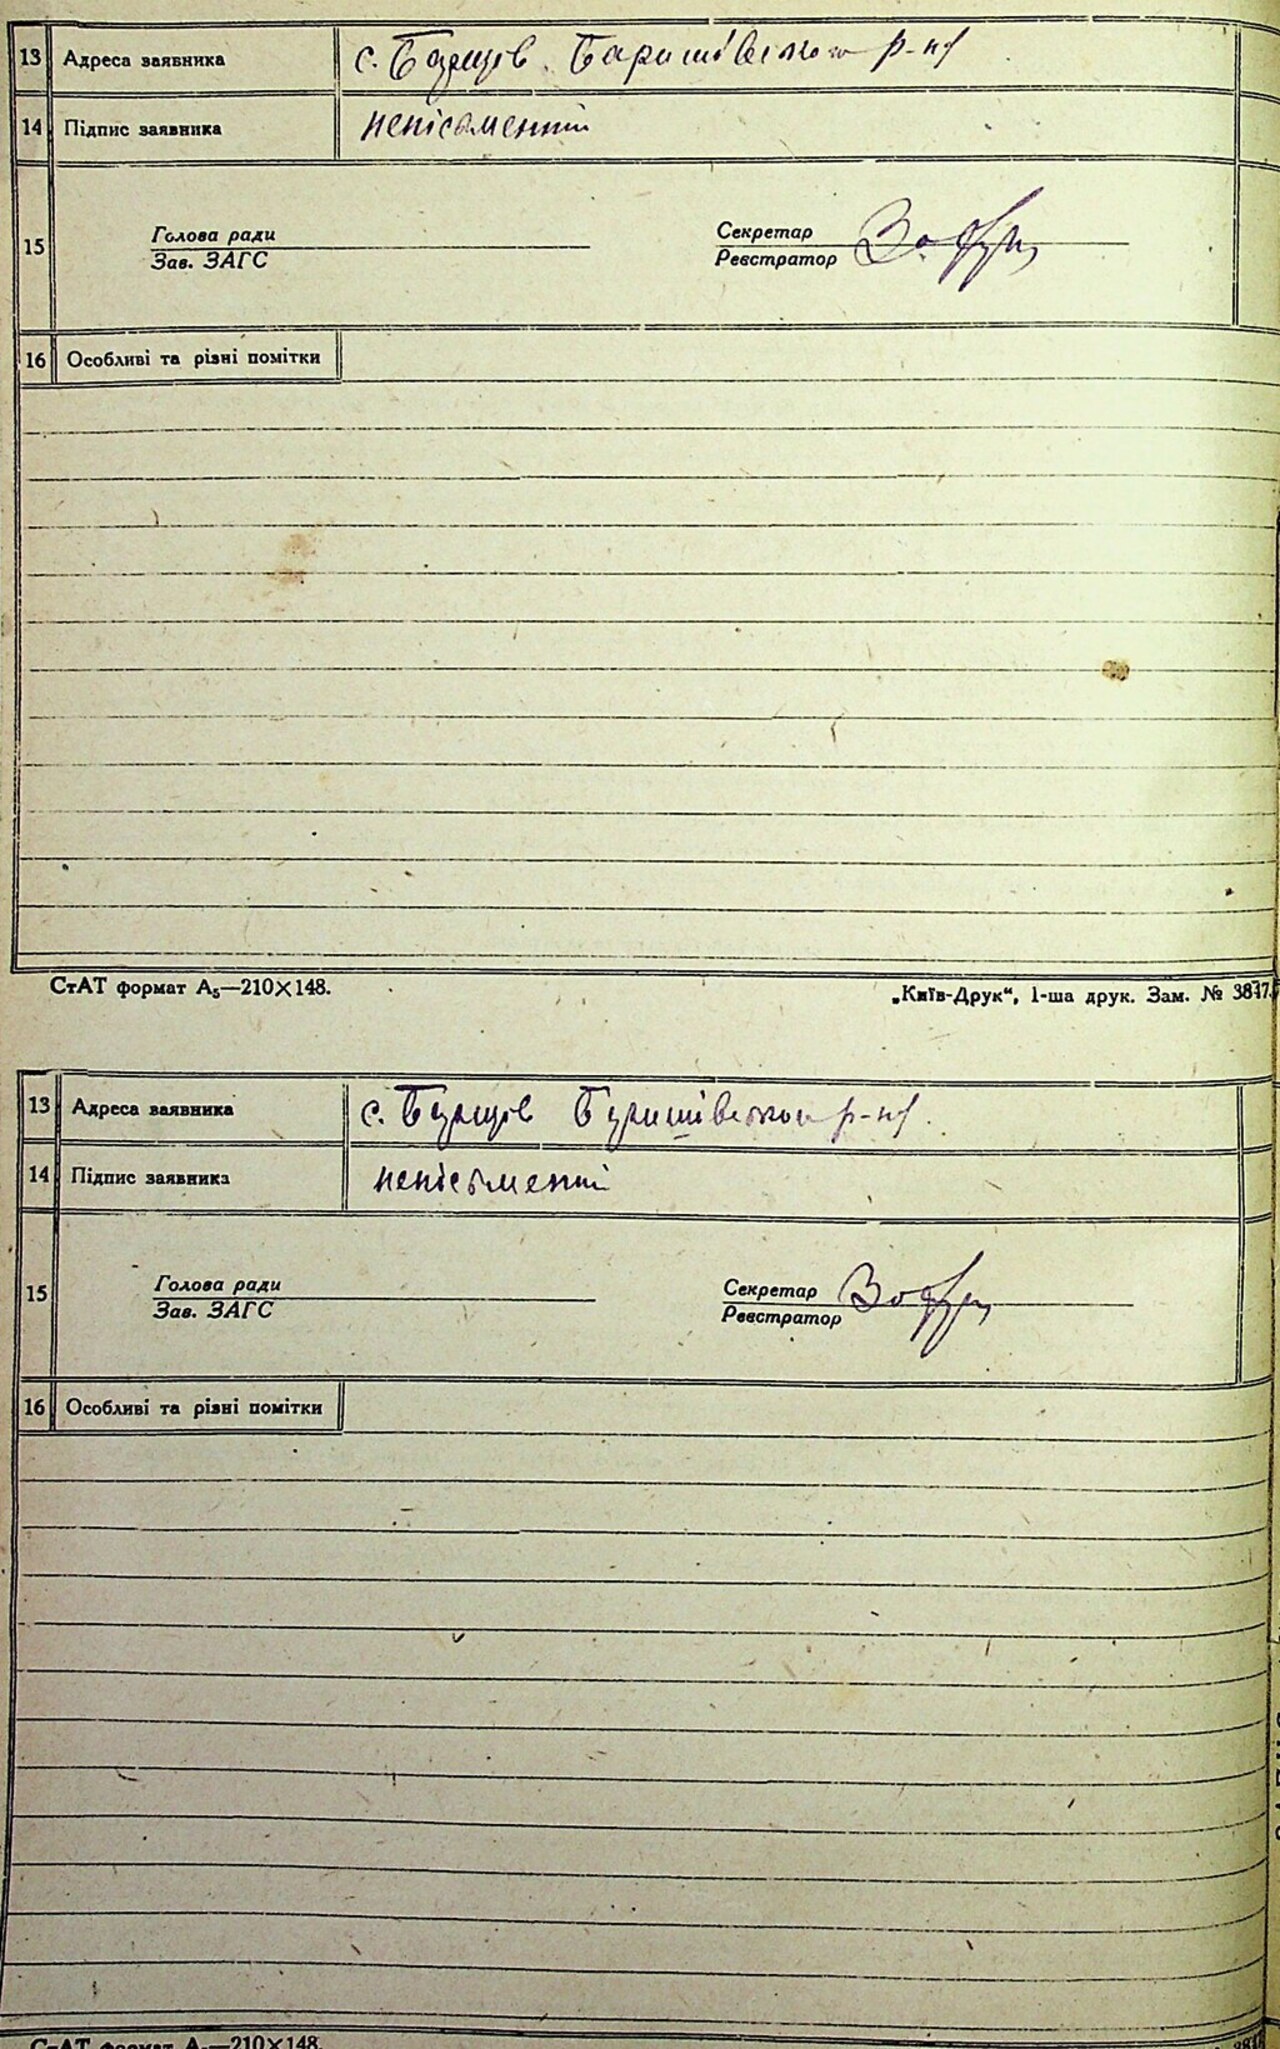 13 Адреса заявника с. Борщів Баришівського р-ну
14 Підпис заявника неписьменний
15 Голова ради
Зав. ЗАГС
Секретар
Реєстратор
16 Особливі та різні помітки
СтАТ формат А₅—210×148.
„Київ-Друк“, 1-ша друк. Зам. № 3847.
13 Адреса заявника с. Борщів Баришівського р-ну.
14 Підпис заявника неписьменний
15 Голова ради
Зав. ЗАГС
Секретар
Реєстратор
16 Особливі та різні помітки
СтАТ формат А₅—210×148.